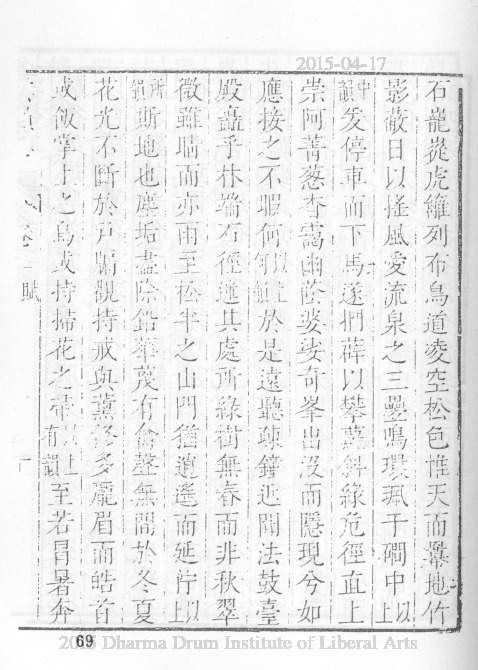 2015-04-17
石龍從虎籬列布鳥道凌空松色惟天而羃地竹
影蔽日以搖風愛流泉之三疊鳴環珮于磵中以上
中韻爰停車而下馬遂捫薜以攀蘿斜緣危徑直上
崇阿菁葱杳靄幽蔭婆娑奇峯出沒而隱現兮如
應接之不暇何以上何韻於是遠聽疎鐘近聞法鼓臺
殿矗乎林端石徑遞其處所綠樹無春而非秋翠
微雖晴而亦雨至松半之山門猶道遙而延佇以上
所韻斯地也塵垢盡除鉛華蔑有禽聲無間於冬夏
花光不斷於戶牖觀持戒與薰修多龎眉而皓首
或飯掌上之鳥或持掃花之帚以上有韻至若冒暑奔
賦
69
Dharma Drum Institute of Liberal Arts